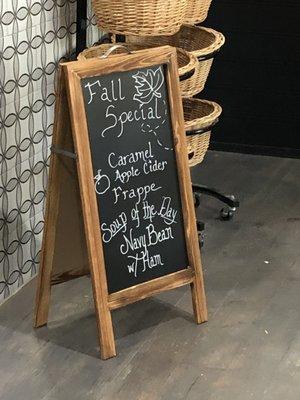 Fall
Special
Caramel
Apple Cider
Frappe
Soup of the Day
Navy Bean
w/ Ham